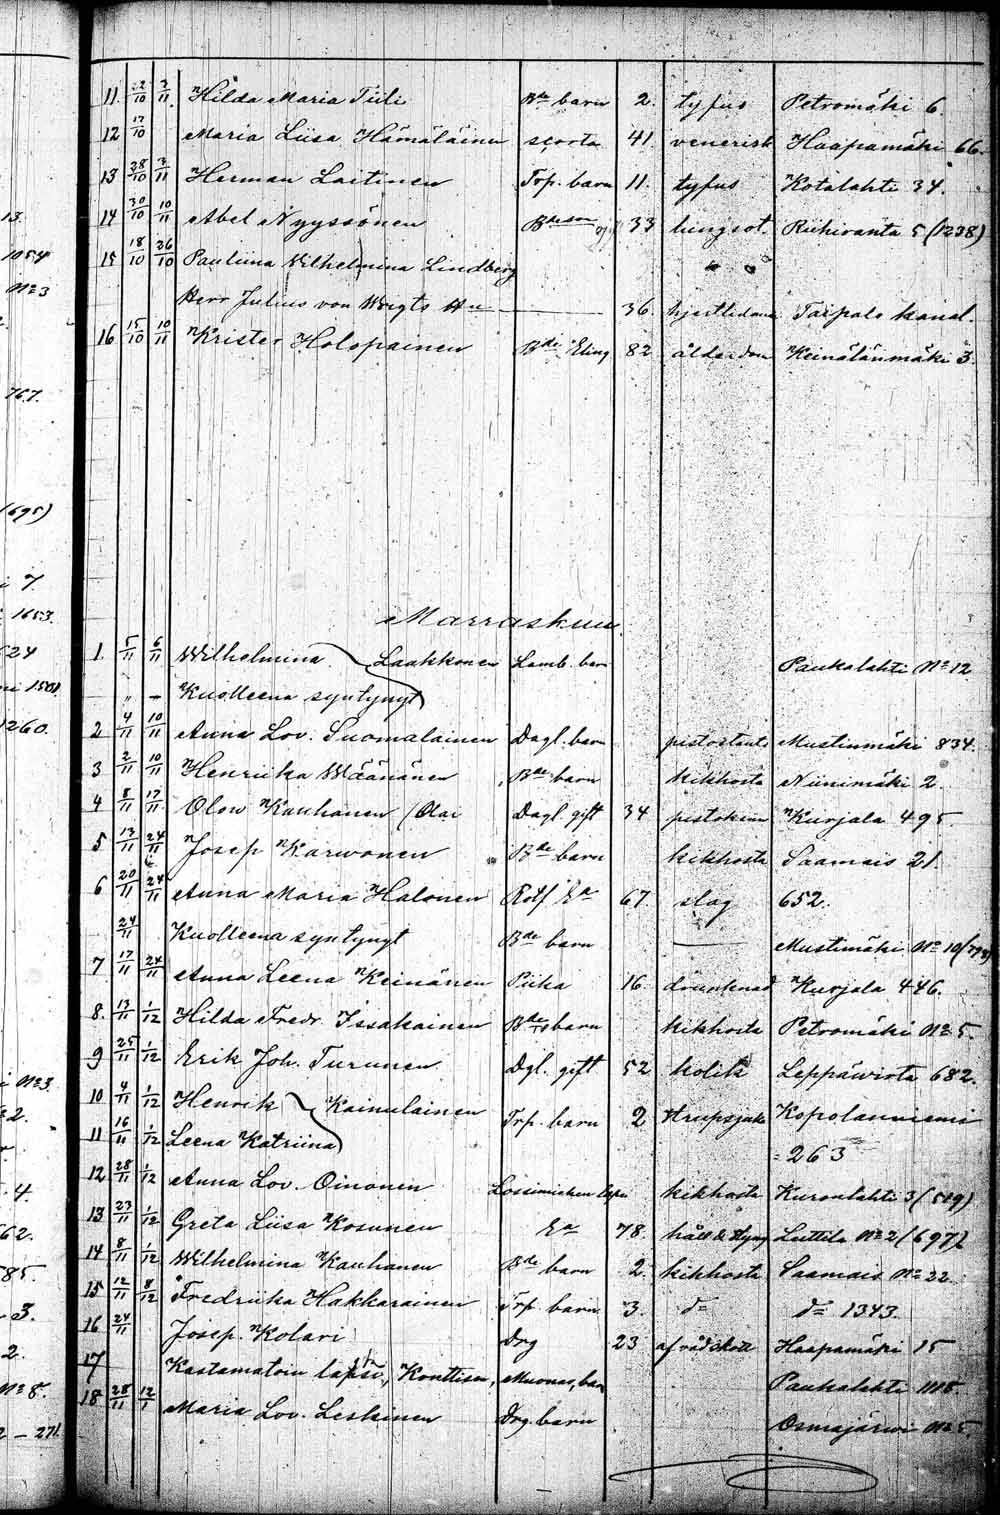 13.
1054
No 3
767.
(695)
7.
1653.
524
1501
1260.
No 3.
2.
4.
62.
85.
3.
2.
No 8.
2 - 271.
11. 22/10 3/11. Hilda Maria Tiili Bde barn 2. tyfus Petromäki 6.
12 17/10 Maria Liisa Hämäläinen scorta 41 venerisk Haapamäki 66.
13 28/10 3/11 Herman Laitinen Trp. barn 11. tyfus Kotalahti 34.
14 30/10 10/11 Abel Nyyssönen Bdeson 33 lungsot. Riihiranta 5 (1238)
15 18/10 26/10 Pauliina Wilhelmina Lindberg
Herr Julius von Wrigts Hu 36. hjertlidande Taipale kanal.
16 15/10 10/11 Krister Holopainen Bde Eling 82 ålderdom Keinälänmäki 3.
Marraskuu
1. 5/11 6/11 Wilhelmina Laakkonen Lamb. barn Paukalahti No 12
" — Kuolleena syntynyt
2 4/11 10/11 Anna Lov. Suomalainen Dagl. barn Mustinmäki 834.
3 2/11 10/11 Henriika Väänänen Bde barn kikhosta Niinimäki 2.
4 8/11 17/11 Olow Kauhanen (Olai Dagl. gift 34 pistoksen Kurjala 495.
5 13/11 24/11 Josep Karwonen Bde barn kikhosta Saamais 21.
6 20/11 24/11 Anna Maria Halonen Rotf Ea 67. slag 652.
24/11 Kuolleena syntynyt Bde barn — Mustimäki No 10
7 17/11 24/11 Anna Leena Keinänen Piika 16. drunknad Kurjala 446.
8. 13/11 1/12 Hilda Fredr. Issakainen Bde barn kikhosta Petromäki No 5.
9 25/11 1/12 Erik Joh. Turunen Dgl. gift 52 kolik Leppäwirta 682.
10 4/11 1/12 Henrik Kainulainen Trp. barn 2 strupsjuka Kopolanniemi
11 16/11 1/12 Leena Katriina 263
12 28/11 1/12 Anna Lov. Oinonen kikhosta Kuronlahti 3 (519)
13 23/11 1/12 Greta Liisa Kosunen Ea 78. håll & styng Luttila No 2 (697)
14 8/11 1/12 Wilhelmina Kauhanen Bde barn 2. kikhosta Saamais No 22.
15 12/11 8/12 Fredriika Hakkarainen Trp. barn 3. do do 1343.
16 24/11 Josep. Kolari Drg 23 af rödskott Haapamäki 15
17 Kastamatoin lapsi, Konttinen, barn Paukalahti
18 28/11 12/1 Maria Lov. Leskinen Drg barn Osmajärwi No 5.